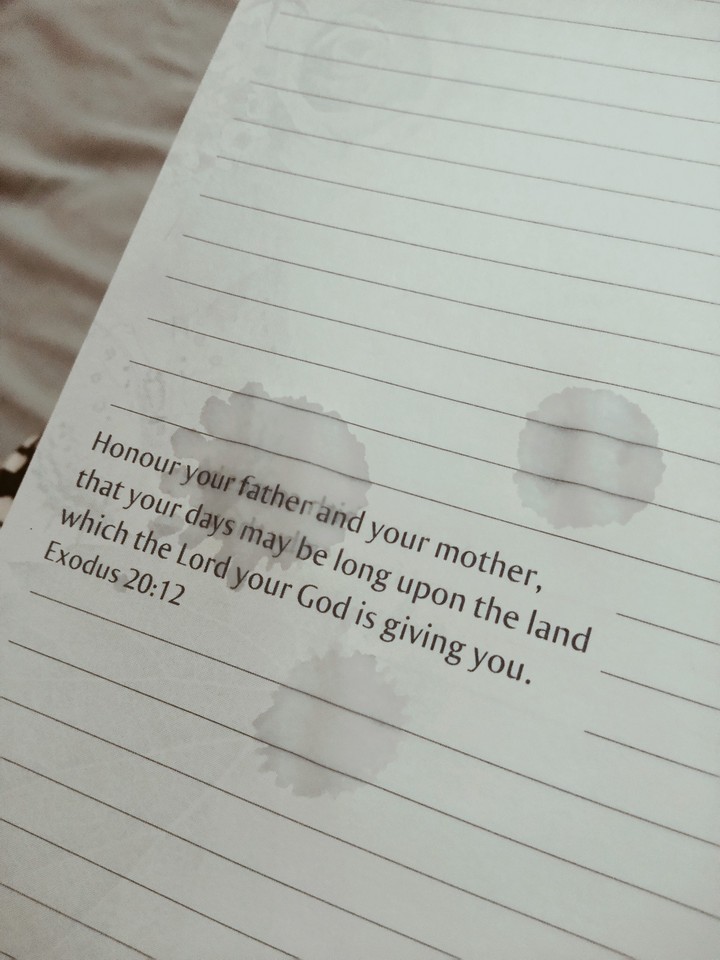 Honour your father and your mother,
that your days may be long upon the land
which the Lord your God is giving you.
Exodus 20:12